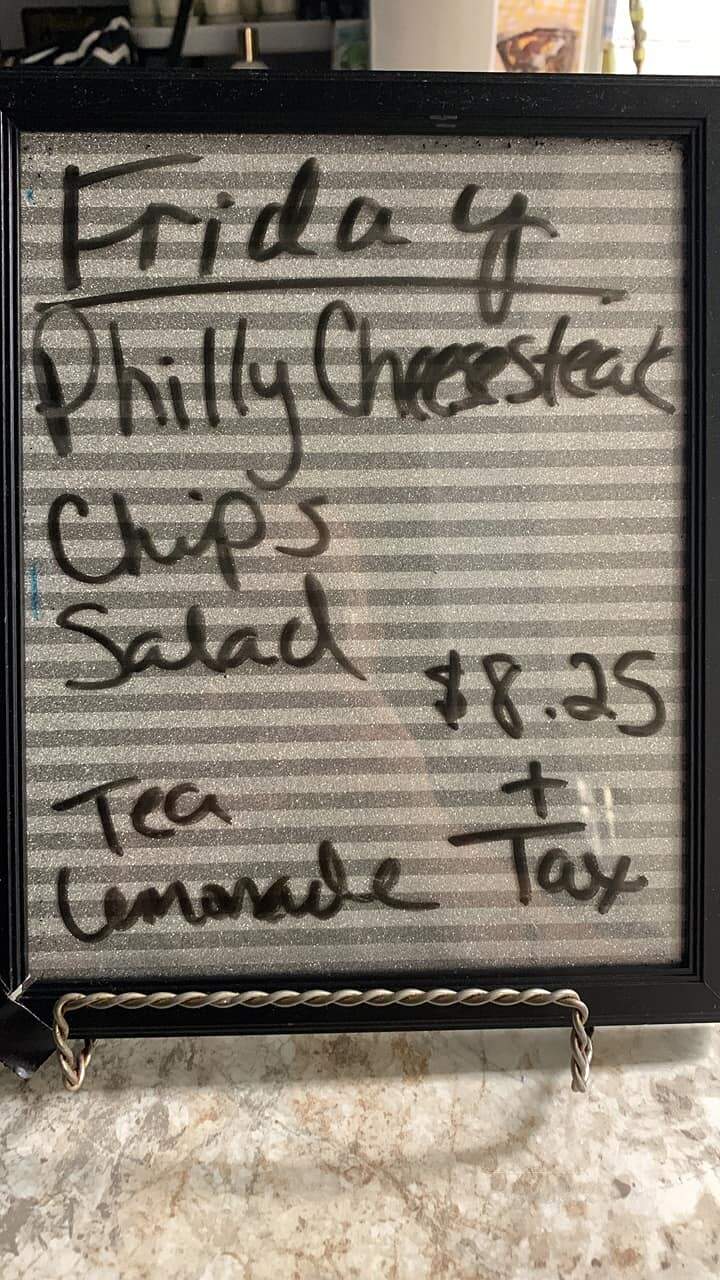 Friday
Philly Cheesesteak
Chips
Salad
$8.25
+
Tax
Tea
Lemonade